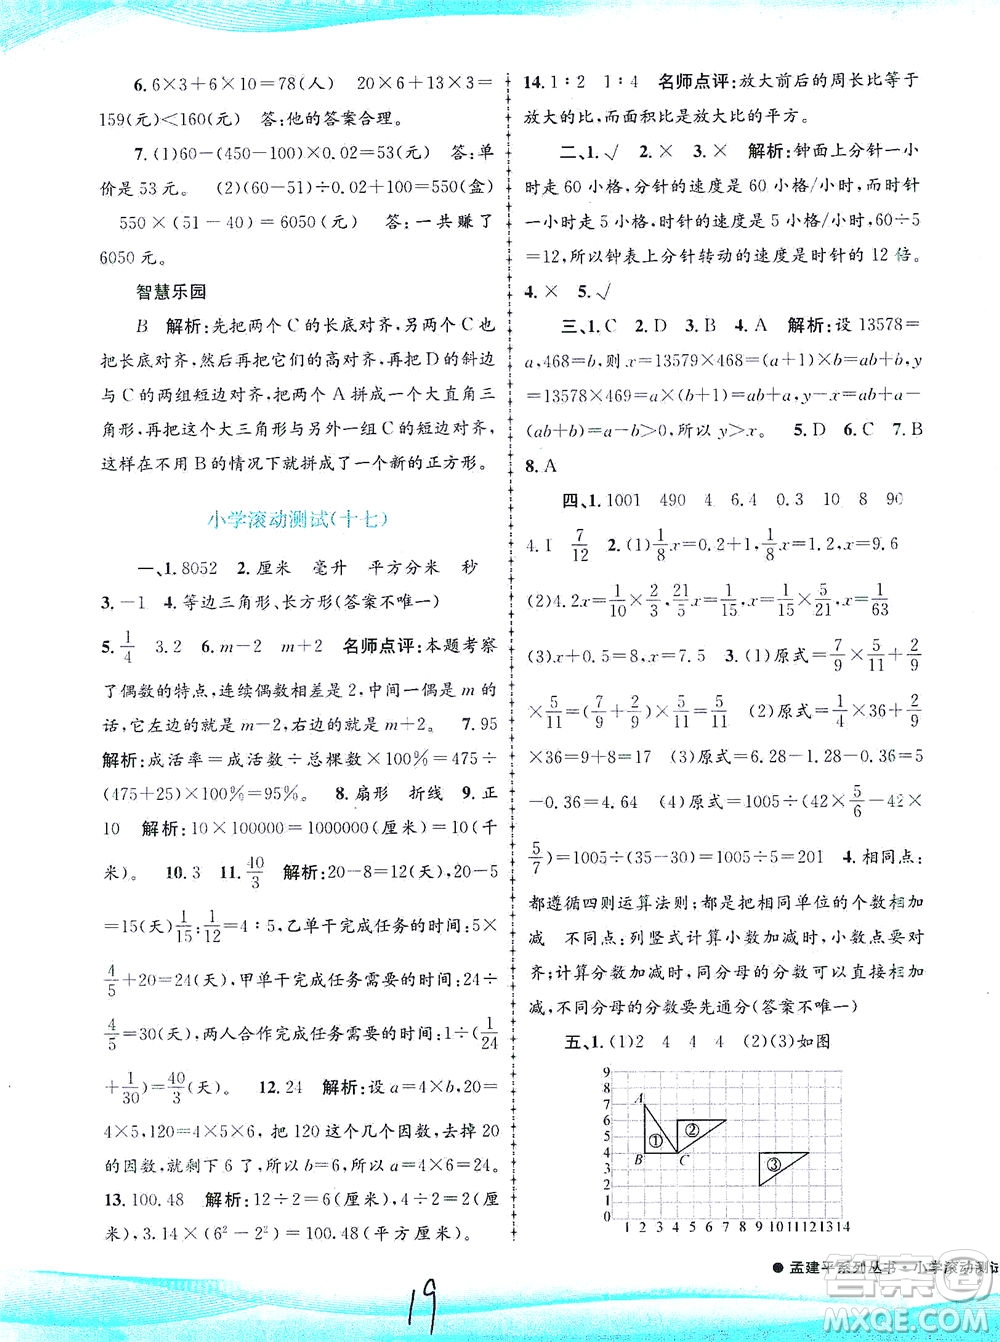 6. 6×3+6×10=78(人)　20×6+13×3=
159(元)<160(元)　答:他的答案合理。
7. (1)60-(450-100)×0.02=53(元)　答:单
价是 53 元。　(2)(60-51)÷0.02+100=550(盒)
550×(51-40)=6050(元)　答:一共赚了
6050 元。
智慧乐园
B　解析:先把两个 C 的长底对齐,然后两个 C 也
把长底对齐,然后再把它们的高对齐,再把 D 的斜边
与 C 的两组短边对齐,把两个 A 拼成一个大直角三
角形,再把这个大三角形与另外一组 C 的短边对齐,
这样在不用 B 的情况下就拼成了一个新的正方形。
小学滚动测试(十七)
一、1. 8052　2. 厘米　毫升　平方分米　秒
3. -1　4. 等边三角形、长方形(答案不唯一)
5. 1/4　3.2　6. m-2　m+2　名师点评:本题考察
了偶数的特点,连续偶数相差是 2,中间一偶是 m 的
话,它左边的就是 m-2,右边的就是 m+2。　7. 95
解析:成活率=成活数÷总棵数×100%=475÷
(475+25)×100%=95%。　8. 扇形　折线　9. 正
10　解析:10×100000=1000000(厘米)=10(千
米)。　10. 3　11. 40/3　解析:20-8=12(天),20-5
=15(天) 1/15:1/12=4:5,乙单干完成任务的时间:5×
4/5+20=24(天),甲单干完成任务需要的时间:24÷
4/5=30(天),两人合作完成任务需要的时间:1÷(1/24
+1/30)=40/3(天)。　12. 24　解析:设 a=4×5,b=
4×5,120=4×5×6。把 120 这个几个因数,去掉 20
的因数,就只剩下 6 了,所以 b=6。所以 a=4×6=24。
13. 100.48　解析:12÷2=6(厘米),4÷2=2(厘米),
3.14×(6²-2²)=100.48(平方厘米)。
14. 1:2　1:4　名师点评:放大前后的周长比等于
放大的比,而面积比是放大比的平方。
二、1. √　2. ×　3. ×　解析:钟面上分针一小
时走 60 小格,分针的速度是 60 小格/小时,而时针
一小时走 5 小格,时针的速度是 5 小格/小时,60÷5
=12,所以钟表上分针转动的速度是时针的 12 倍。
4. ×　5. √
三、1. C　2. D　3. B　4. A　解析:设 13578=
a,468=b,则 x=13579×468=(a+1)×b=ab+b,y=
13578×469=a×(b+1)=ab+a,y-x=ab+a-
(ab+b)=a-b>0,所以 y>x。　5. D　6. C　7. B
8. A
四、1. 1001　490　4　6.4　0.3　10　8　90
4.1　7/12　2. (1)1/8x=0.2+1,1/8x=1.2,x=9.6
(2)4.2x=1/10×2/3,21/5x=1/15,x=1/15×5/21,x=1/63
(3)x+0.5=8,x=7.5　3. (1)原式=7/9×5/11+2/9
×5/11=(7/9+2/9)×5/11=5/11　(2)原式=1/4×36+2/9
×36=9+8=17　(3)原式=6.28-1.28-0.36=5
-0.36=4.64　(4)原式=1005÷(42×5/6-42×
5/7)=1005÷(35-30)=1005÷5=201　4. 相同点:
都遵循四则运算法则;都是把相同单位的个数相加
减　不同点:列竖式计算小数加减时,小数点要对
齐;计算分数加减时,同分母的分数可以直接相加
减,不同分母的分数要先通分(答案不唯一)
五、1. (1)2　4　4　4　(2)(3)如图
9
8
7
6
5
4
3
2
1
0
A
B
C
①
②
③
1 2 3 4 5 6 7 8 9 1011121314
●孟建平系列丛书·小学滚动测试
19
答案圈
MXQE.COM